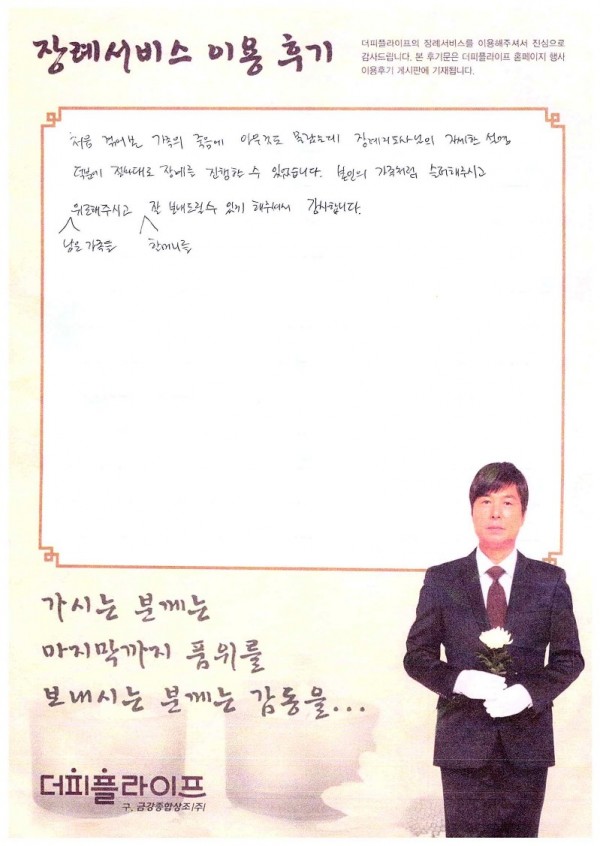 장례서비스 이용 후기
더피플라이프의 장례서비스를 이용해주셔서 진심으로
감사드립니다. 본 후기문은 더피플라이프 홈페이지 행사
이용후기 게시판에 기재됩니다.
처음 겪어본 가족의 죽음에 아무것도 몰랐는데 장례지도사님의 자세한 설명
덕분에 절차대로 장례를 진행할 수 있었습니다. 본인의 가족처럼 슬퍼해주시고
위로해주시고 잘 보내드릴 수 있게 해주셔서 감사합니다.
남은 가족을 할머니를
가시는 분께는
마지막까지 품위를
보내시는 분께는 감동을...
더피플라이프
구. 금강종합상조(주)